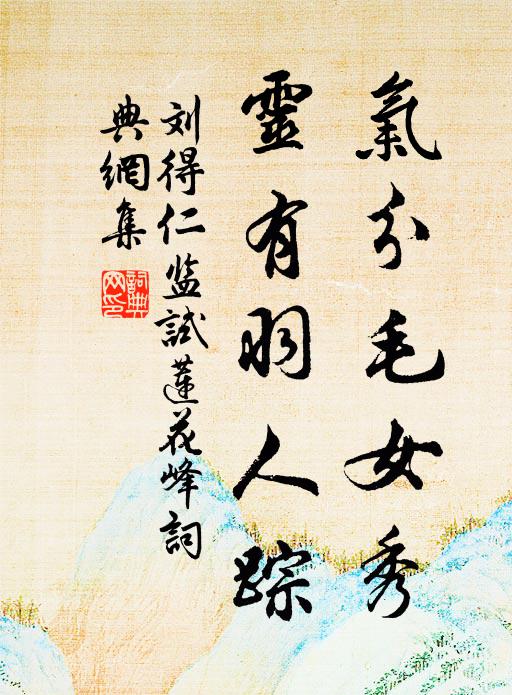 氣分毛女秀
靈有羽人踪
刘得仁监試蓮花峰詞
典網集
詞典
网印